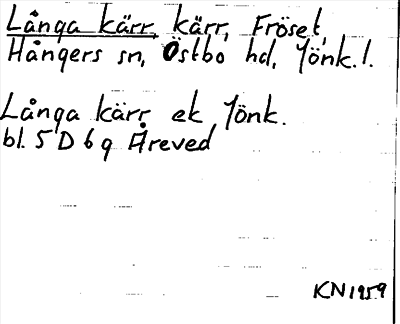 Långa kärr, kärr, Fröset,
Hångers sn, Östbo hd, Jönk.l.
Långa kärr ek Jönk.
bl. 5 D 6 g Åreved
KN 1959